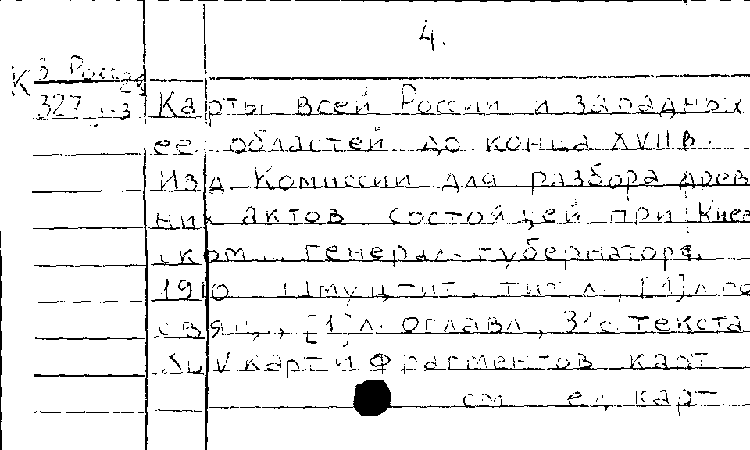 4.
К 3 Россия
327
Карты всей России и западных
ее областей до конца XVII в.
Изд. Комиссии для разбора древ
них актов состоящей при Киев
ском генерал губернаторе.
1910 тит. л., [1] л по
свящ., [1] л. оглавл, текста
карт и фрагментов карт
см ед карт